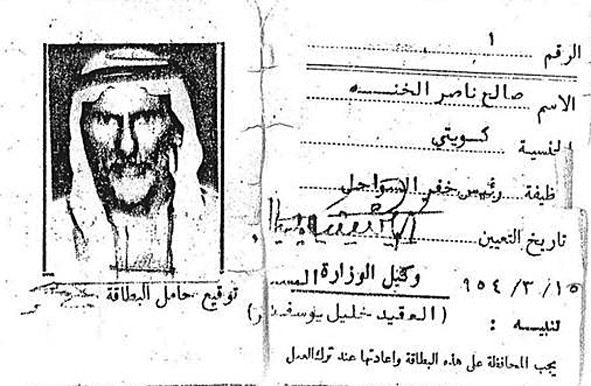 الرقم ١
الاسم صالح ناصر الخنه
لنسية كويتي
ظيفة رئيس خفر السواحل
تاريخ التعيين
١٥/٣/٩٥٤ وكيل الوزارة
(العقيد خليل يوسف
لنبيه :
يجب المحافظة على هذه البطاقة واعادتها عند ترك العمل
توقيع حامل البطاقة